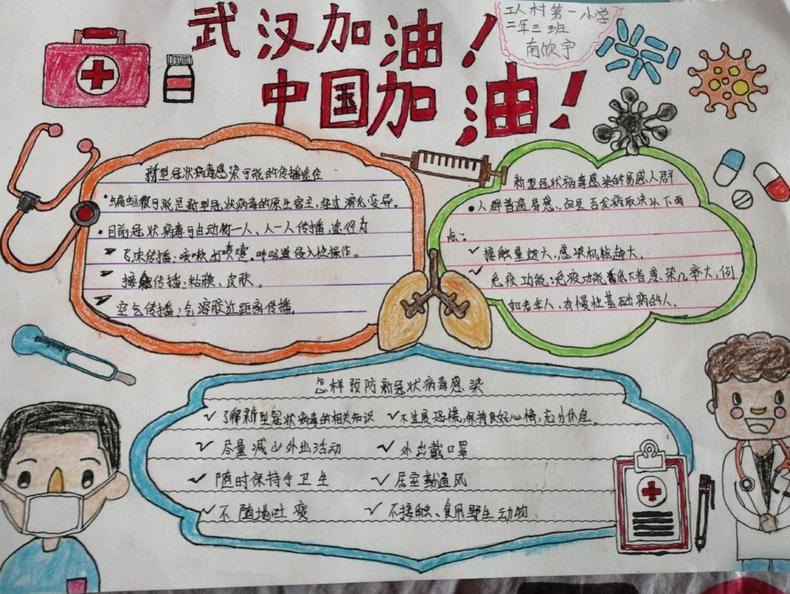 武汉加油!
中国加油!
工人村第一小学
二年三班
南欣宇
新型冠状病毒感染可能的传播途径
•蝙蝠极可能是新型冠状病毒的原生宿主,经过演化变异。
•目前冠状病毒可由动物—人、人—人传播,途径为
飞沫传播:咳嗽、打喷嚏。呼吸道侵入性操作。
接触传播:粘膜、皮肤。
空气传播:气溶胶近距离传播。
新型冠状病毒感染的易感人群
•人群普遍易感,但是否发病取决以下两
点:
✓接触量越大,感染机率越大。
✓免疫功能:免疫功能低下者感染几率大,例
如老年人、有慢性基础病的人。
怎样预防新冠状病毒感染
✓了解新型冠状病毒的相关知识 ✓不过度恐慌,保持良好心情,充分休息。
✓尽量减少外出活动 ✓外出戴口罩
✓随时保持手卫生 ✓居室勤通风
✓不随地吐痰 ✓不接触、食用野生动物